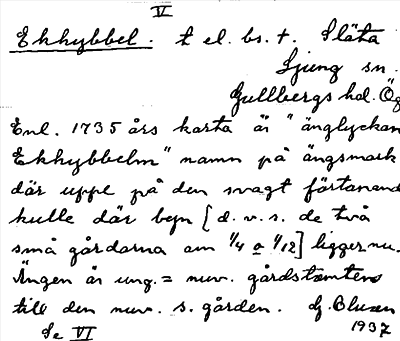 V
Ekhybbel. t el. bs. t. Släta
Ljung sn.
Gullbergs hd. Ög
Enl. 1735 års karta är "änglyckan
Ekhybbelm" namn på ängsmark
där uppe på den svagt förtonand
kulle där bepn [d. v. s. de två
små gårdarna om 1/4 o 1/12] ligger nu.
Ängen är ung. = nuv. gårdstomtens
till den nuv. s. gården. G. Bluxen
Se VI 1937